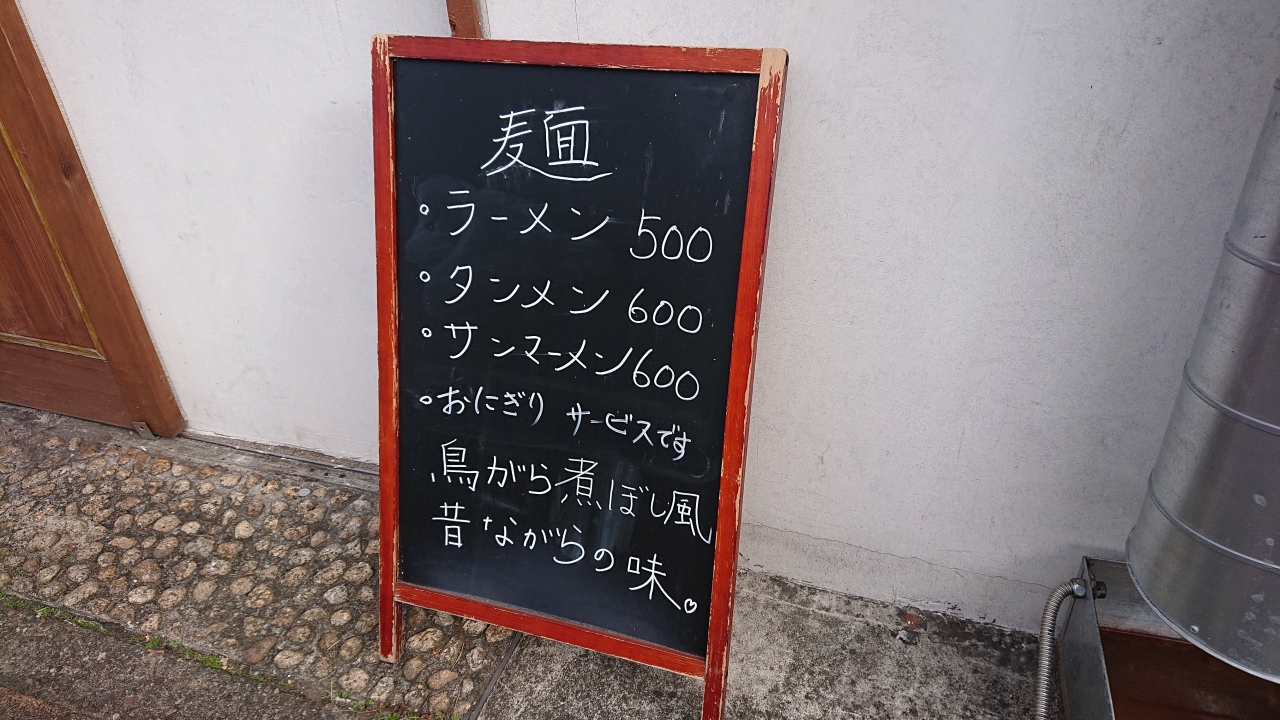 麺
◦ラーメン 500
◦タンメン 600
◦サンマーメン600
◦おにぎり サービスです
鳥がら煮ぼし風
昔ながらの味。